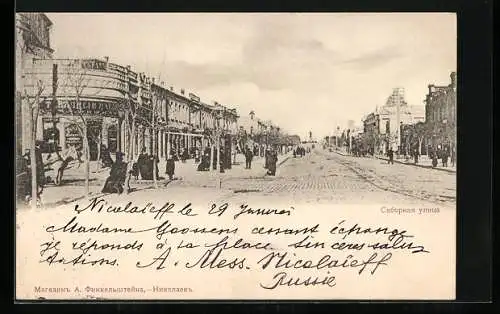 Соборная улица
Nicolaïeff le 29 Janvier
Madame Goosens cessant échange
je réponds à sa place sincères salu-
tations. A. Mess. Nicolaïeff
Russie
Магазинъ А. Финкельштейна,—Николаевъ.